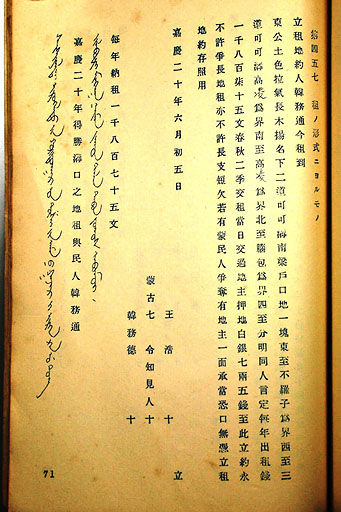 拾四五七 租ノ形式ニヨルモノ
立租地約人韓務通今租到
東公土色拉氣長木揚名下二道可可海南梁戶口地一塊東至不羅子爲界西至三
道可可海高崚爲界南至高崚爲界北至腦包爲界四至分明同人言定每年出租錢
一千八百柒十五文春秋二季交租當日交過地主押地白銀七兩五錢至此立約永
不許爭長地租亦不許長支短欠若有蒙民人爭奪有地主一面承當恐口無憑立租
地約存照用
嘉慶二十年六月初五日 立
王浩 十
蒙古七 令知見人 十
韓務德 十
每年納租一千八百七十五文
嘉慶二十年得勝海口之地租與民人韓務通
71